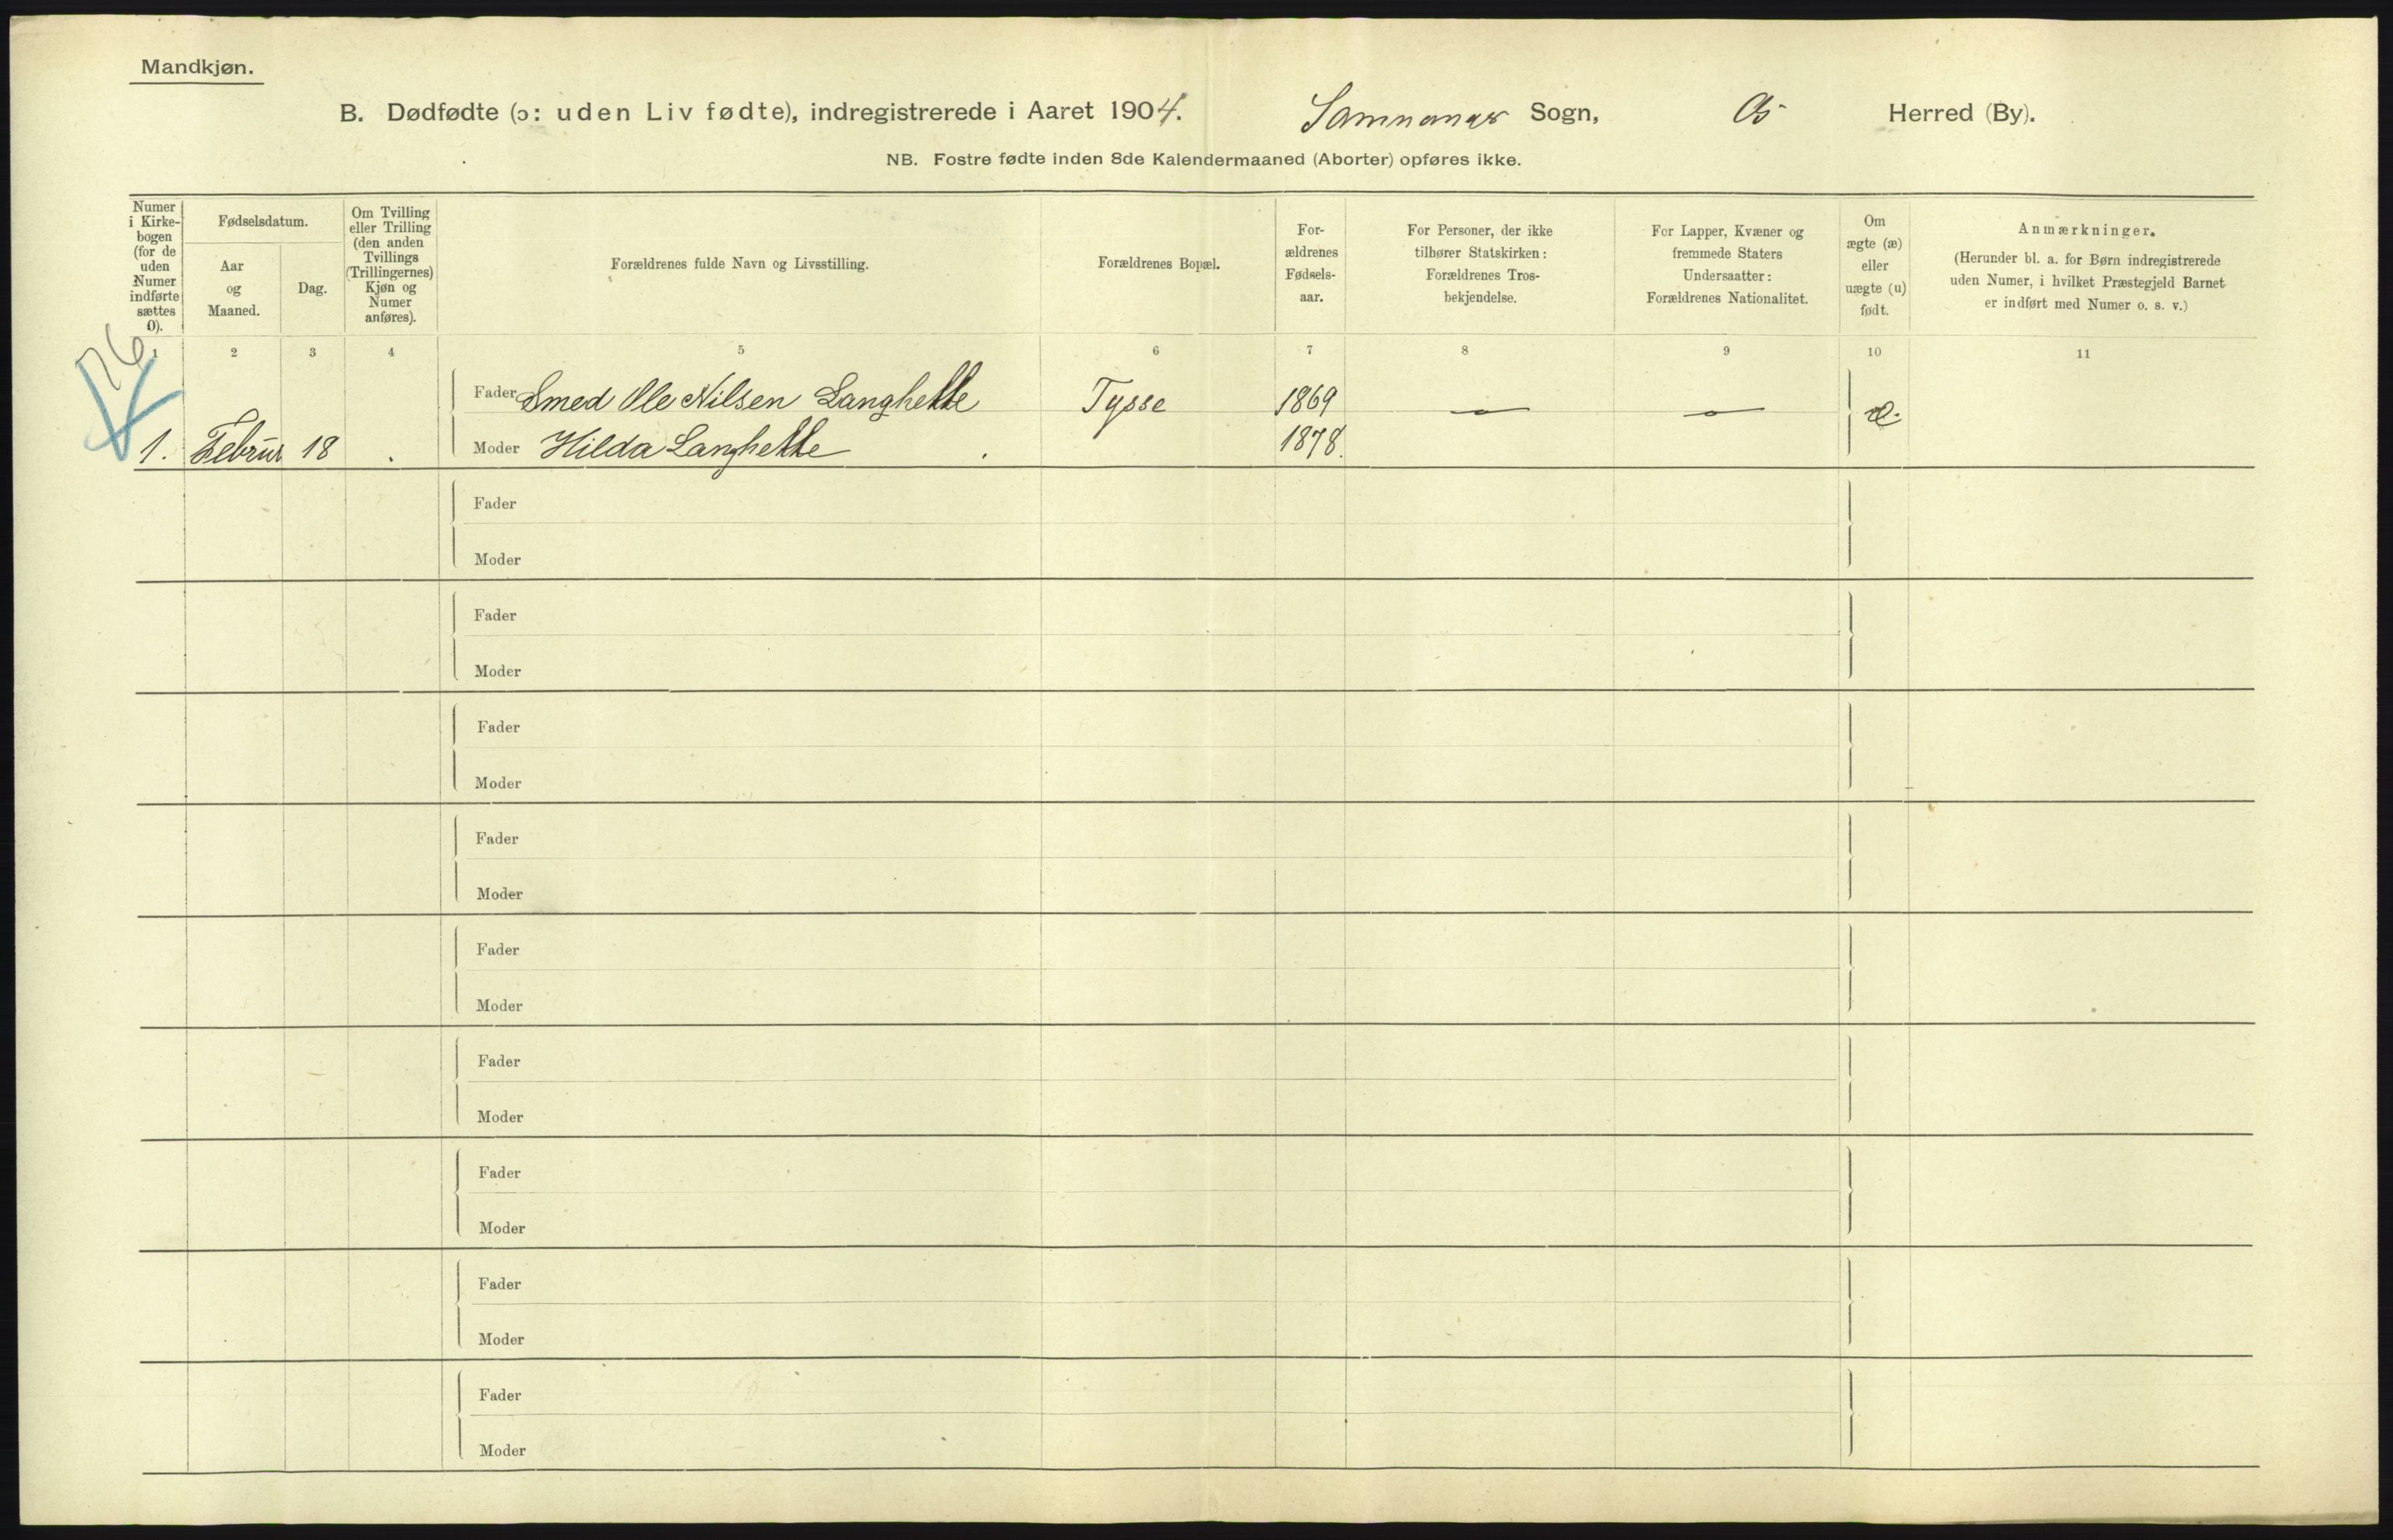 Mandkjøn.
B. Dødfødte (ɔ: uden Liv fødte), indregistrerede i Aaret 1904. Samnanger Sogn, Os Herred (By).
NB. Fostre fødte inden 8de Kalendermaaned (Aborter) opføres ikke.
Numer
i Kirke-
bogen
(for de
uden
Numer
indførte
sættes
0).
Fødselsdatum.
Aar
og
Maaned.
Dag.
Om Tvilling
eller Trilling
(den anden
Tvillings
(Trillingernes)
Kjøn og
Numer
anføres).
Forældrenes fulde Navn og Livsstilling.
Forældrenes Bopæl.
For-
ældrenes
Fødsels-
aar.
For Personer, der ikke
tilhører Statskirken:
Forældrenes Tros-
bekjendelse.
For Lapper, Kvæner og
fremmede Staters
Undersaatter:
Forældrenes Nationalitet.
Om
ægte (æ)
eller
uægte (u)
født.
Anmærkninger.
(Herunder bl. a. for Børn indregistrerede
uden Numer, i hvilket Præstegjeld Barnet
er indført med Numer o. s. v.)
1 2 3 4 5 6 7 8 9 10 11
76
Fader Smed Ole Nilsen Langhelle Tysse 1869 — — æ.
1. Februr 18 Moder Hilda Langhelle 1878.
Fader
Moder
Fader
Moder
Fader
Moder
Fader
Moder
Fader
Moder
Fader
Moder
Fader
Moder
Fader
Moder
Fader
Moder